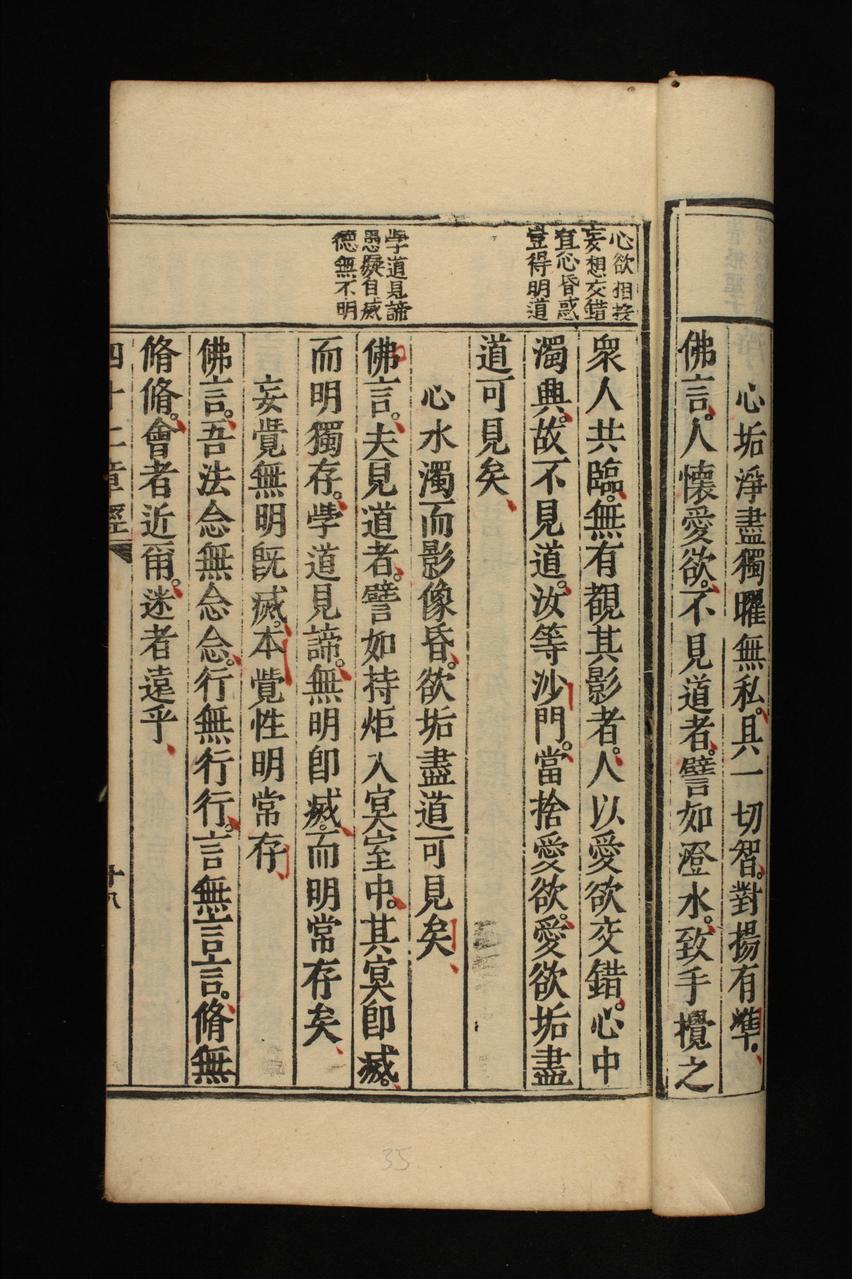 心垢淨盡獨曜無私。具一切智。對揚有準。
佛言。人懷愛欲。不見道者。譬如澄水。致手攪之
心欲相投
妄想交錯
宜心昏惑
豈得明道
衆人共臨。無有覩其影者。人以愛欲交錯。心中
濁興。故不見道。汝等沙門。當捨愛欲。愛欲垢盡
道可見矣
心水濁而影像昏。欲垢盡道可見矣
學道見諦
愚癡自滅
德無不明
佛言。夫見道者。譬如持炬入冥室中。其冥卽滅。
而明獨存。學道見諦。無明卽滅。而明常存矣
妄覺無明旣滅。本覺性明常存
佛言。吾法念無念念。行無行行。言無言言。脩無
脩脩。會者近甭。迷者遠乎
四十二章經
十八
35